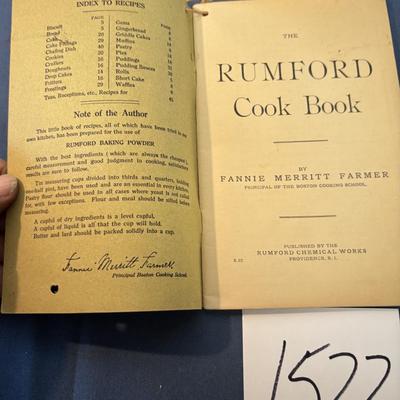 INDEX TO RECIPES
PAGE
Biscuit 5
Bread
Cake
Cake Fillings
Chafing Dish
Cookies
Crullers
Doughnuts
Drop Cakes
Fritters
Frostings 29
PAGE
Gems
Gingerbread
Griddle Cakes
Muffins
Pastry
Pies
Puddings
Pudding Sauces
Rolls
Short Cake
Waffles
Teas, Receptions, etc., Recipes for
Note of the Author
This little book of recipes, all of which have been tried in my
own kitchen, has been prepared for the use of
RUMFORD BAKING POWDER
With the best ingredients (which are always the cheapest),
careful measurement and good judgment in cooking, satisfactory
results are sure to follow.
Tin measuring cups divided into thirds and quarters, holding
one-half pint, have been used and are an essential in every kitchen.
Pastry flour should be used in all cases where yeast is not called
for, with few exceptions. Flour and meal should be sifted before
measuring.
A cupful of dry ingredients is a level cupful.
A cupful of liquid is all that the cup will hold.
Butter and lard should be packed solidly into a cup.
Fannie Merritt Farmer.
Principal Boston Cooking School.
THE
RUMFORD
Cook Book
BY
FANNIE MERRITT FARMER
PRINCIPAL OF THE BOSTON COOKING SCHOOL
PUBLISHED BY THE
RUMFORD CHEMICAL WORKS
PROVIDENCE, R. I.
1577